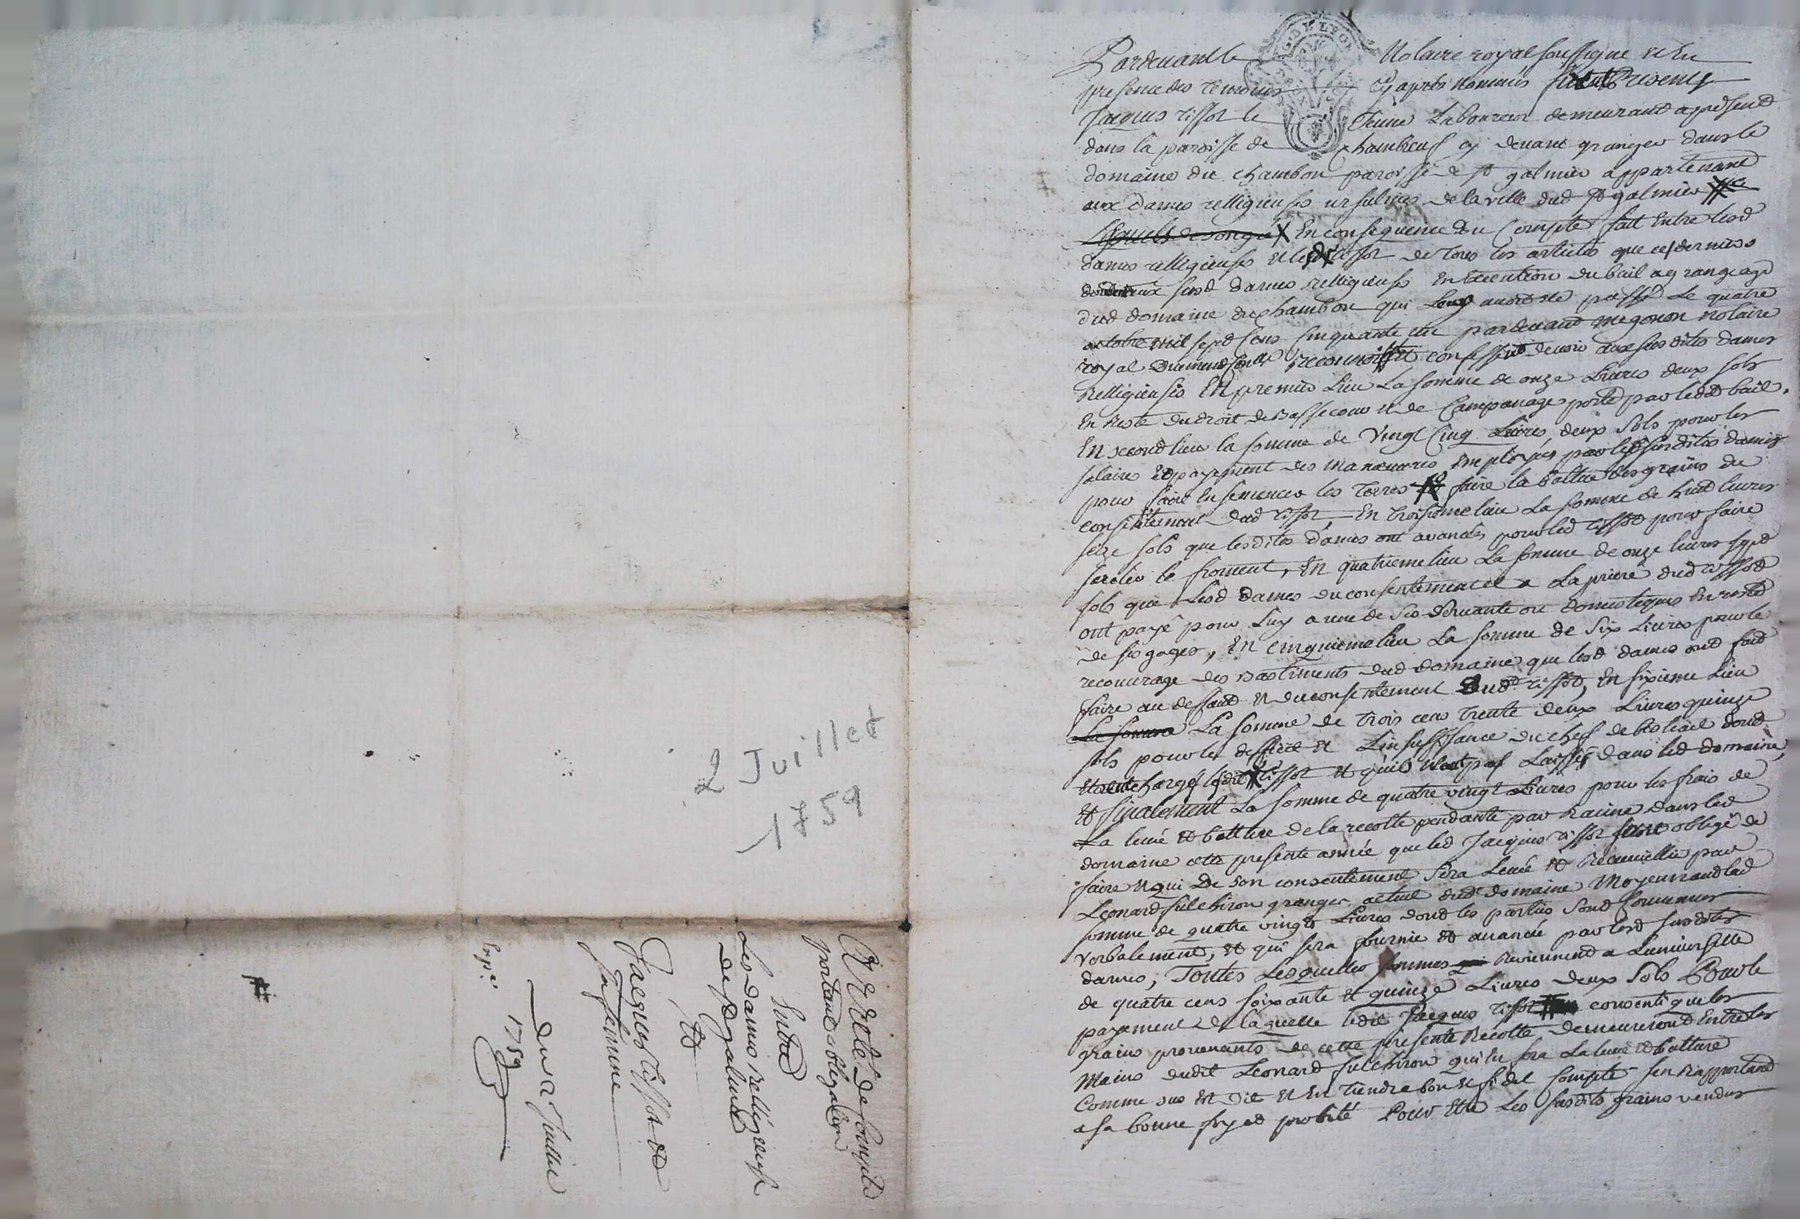 Pardevant le Notaire royal soussigné et En
presence des temoins cy apres nommés fut Present
Jacques tissot le Jeune Laboureur demeurant apresent
dans la paroisse de chambeuf cy devant granger dans le
domaine du chambon paroisse de St galmier appartenant
aux dames relligieuses ursulines de la ville dud St galmier
En consequence du Compte fait Entre lesd
dames relligieuses et led tissot de tous les articles que ce dernier
aux susd dames relligieuses En execution du bail a grangeage
dud domaine du chambon qui Luy auroit été passé Le quatre
octobre mil sept cens cinquante un pardevant Me gonon Notaire
royal reconnoit et confesse devoir aux susdites dames
Relligieuses En premier Lieu La somme de onze Livres deux sols
En reste du droit de Basse cour et de Campanage porté par ledit bail,
En second lieu la somme de Vingt Cinq Livres, deux sols pour les
salaire et payement des manœuvres Employés par les susdites dames
pour faire Ensemencer les terres et faire la batture des grains du
consentement dud tissot, En troisieme lieu La somme de huit livres
seize sols que lesdites dames ont avancés pour led tissot pour faire
sercler le froment, En quatrieme lieu La somme de onze livres sept
sols que Lesd dames du consentement et a La priere dud tissot
ont payé pour Luy a une de ses servante ou domestiques En reste
de ses gages, En cinquieme lieu La somme de six Livres pour le
recouvrage des Bastiments dud domaine que lesd dames ont fait
faire au deffaut et du consentement dud tissot, En sixieme Lieu
La somme de trois cens trente deux Livres quinze
sols pour le et L'insuffisance du chef de bestiail dont
chargé ledit tissot et qu'il n'a pas Laissé dans led domaine,
Et finalement La somme de quatre vingt Livres pour les frais de
La levée et batture de la recolte pendante par Racine dans led
domaine cette presente année que led Jacques tissot obligé de
faire et qui De son consentement sera Levée et Recueillie par
Leonard fulchiron granger actuel dud domaine Moyennant lad
somme de quatre vingt Livres dont les parties sont convenues
verbalement, et qui sera fournie et avancée par lesd susdites
dames, Toutes Lesquelles sommes Reviennent a L'universelle
de quatre cens soixante et quinze Livres deux sols Pour le
payement de laquelle ledit Jacques tissot consent que les
grains provenants de cette presente Recolte demeureront Entre les
Mains dudit Leonard fulchiron qui en fera La levée et batture
Comme sus est Dit et En tiendra bon et fidel Compte s'en Rapportant
a sa bonne foy et probité Pour être Les susdits grains vendus
2 Juillet
1759
Arrêté De Compte
portant obligation
Entre
Les dames relligieuses
de St galmier
Et
Jacques Tissot et
sa femme
Du 2 Juillet
1759
Exp.